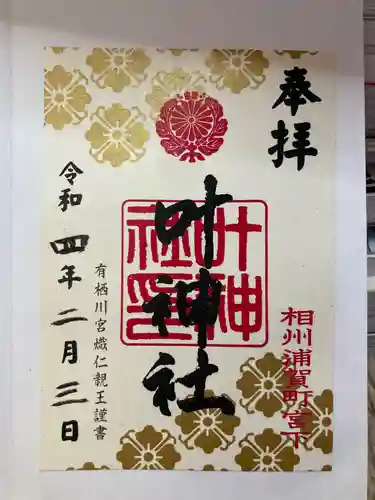 奉拝
相州浦賀町宮下
叶神社
叶神社印
有栖川宮熾仁親王謹書
令和四年二月三日